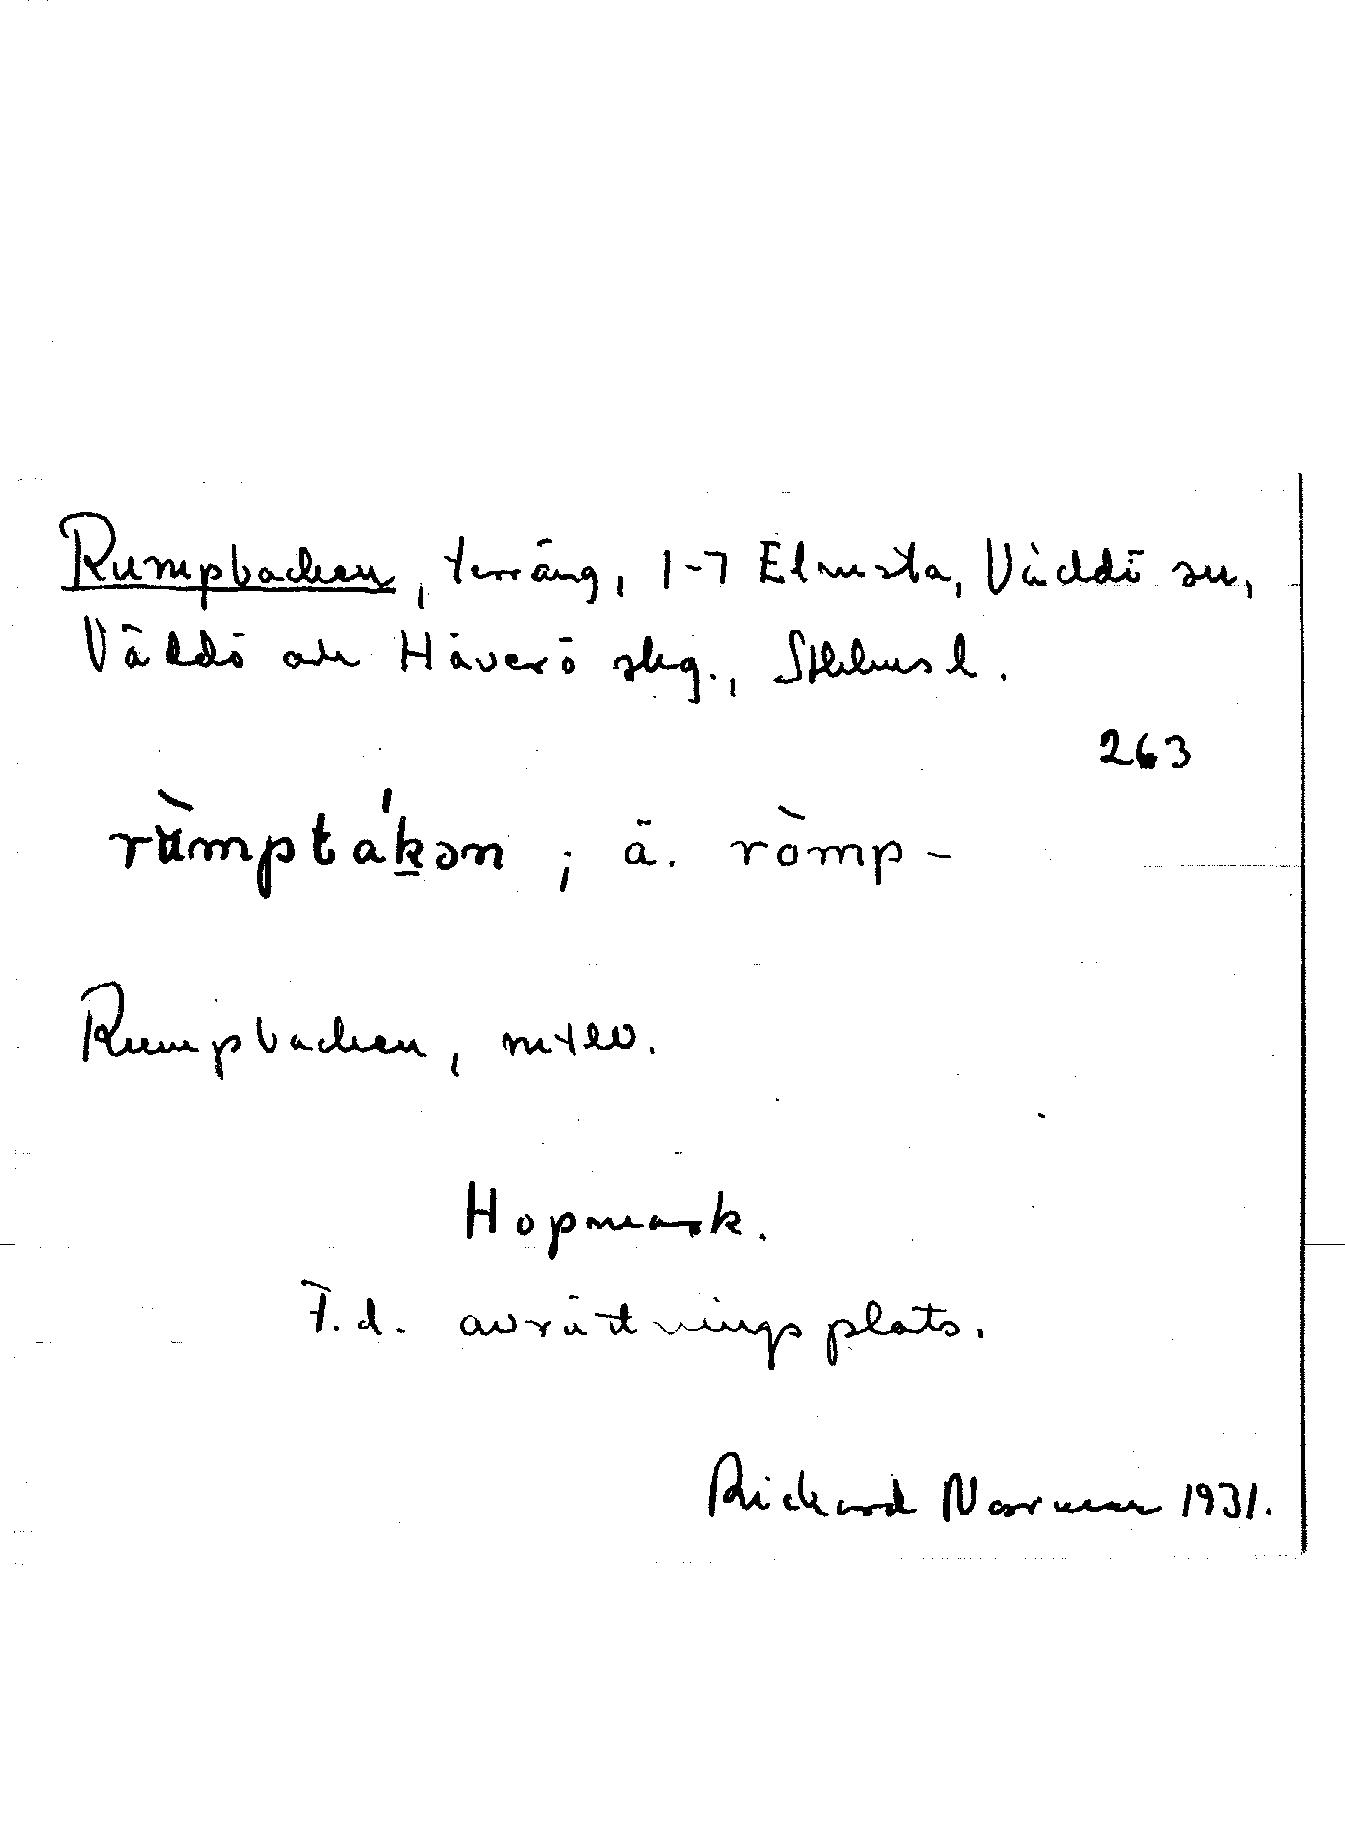 Rumpbacken, terräng, 1-7 Elmsta, Väddö sn,
Väddö och Häverö skg., Sthlms l.
263
rùmptákən ; ä. ròmp-
Rumpbacken, mtlv.
Hopmark.
F.d. avrättningsplats.
Rickard Norman 1931.